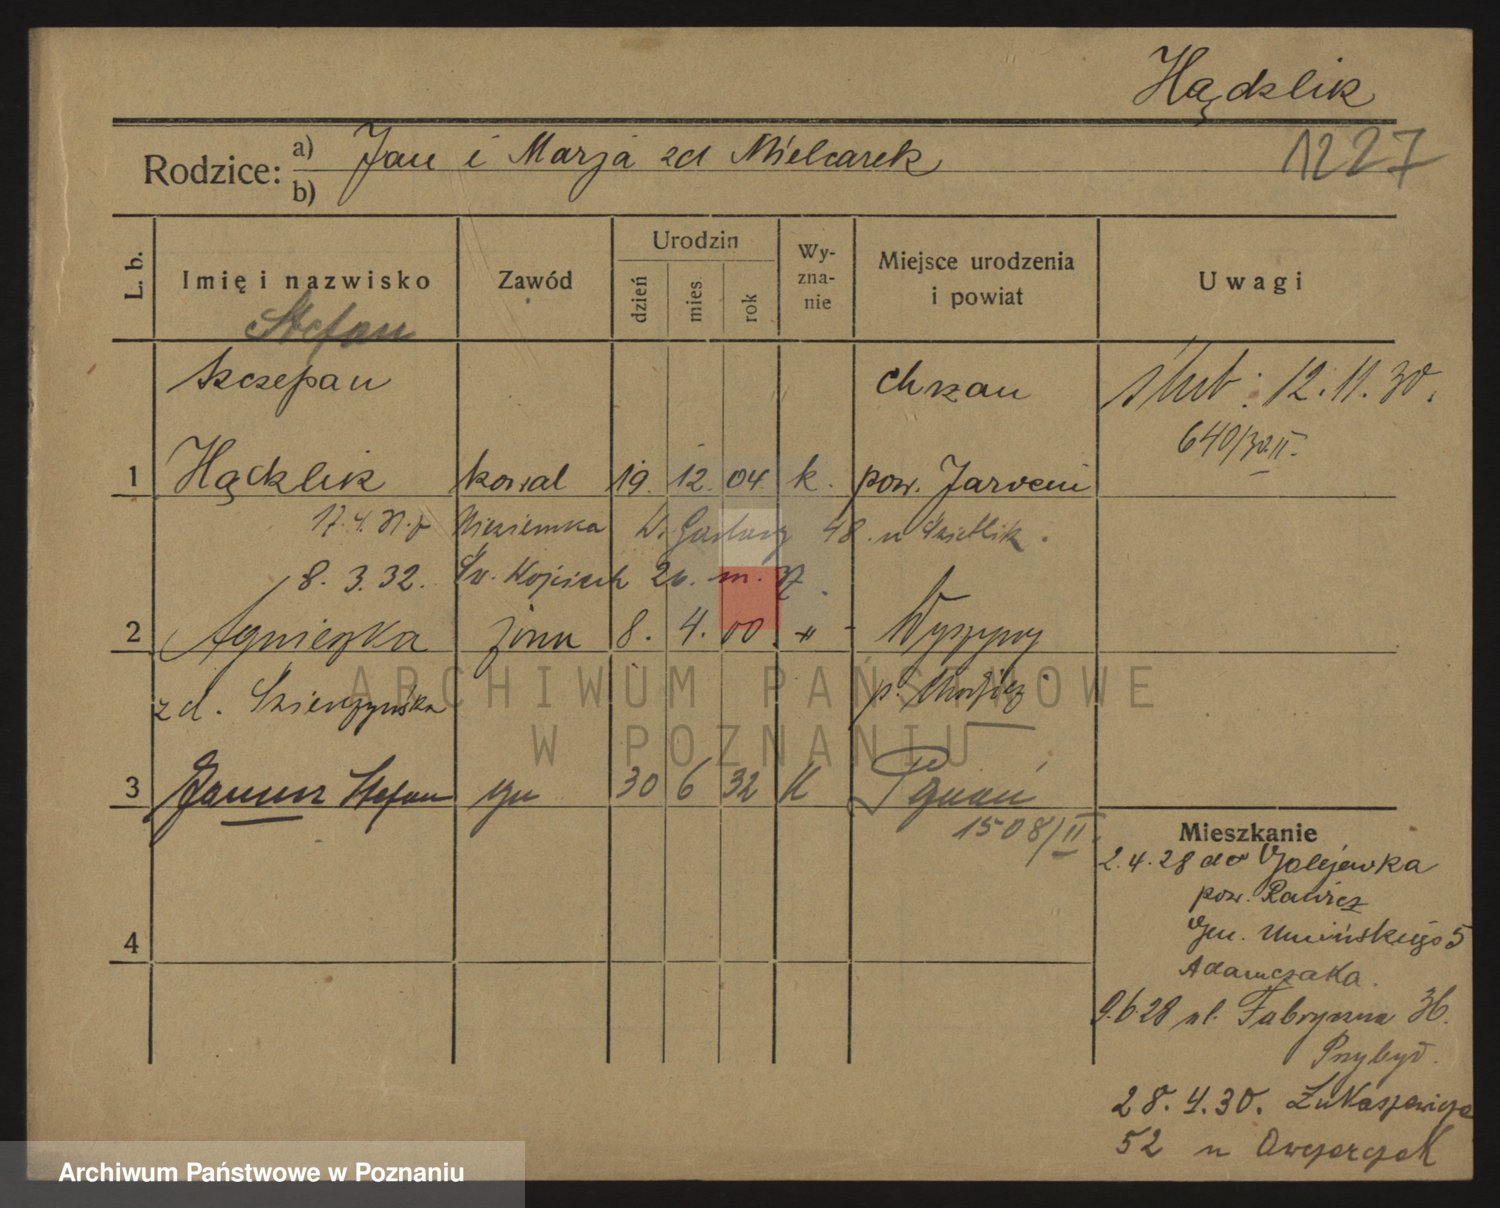 Hądzlik
1227
Rodzice: a) Jan i Marja zd Mielcarek
b)
L. b.
Imię i nazwisko
Zawód
Urodzin
dzień
mies
rok
Wy-
zna-
nie
Miejsce urodzenia
i powiat
Uwagi
Stefan
Szczepan
Chrzan
ślub: 12.11.30.
640/30 II.
1 Hądzlik kowal 19. 12. 04 k. pow. Jarocin
17.4. Niezienska 48.
8. 3.32. Św. Wojciech 26. m.
2 Agnieszka żona 8. 4. 00. -"- Wyszyny
zd. p. Chodzież
3 Janusz Stefan syn 30 6 32 K Pznań
1508/II.
4
Mieszkanie
2.4.28 do Golejewka
pow. Rawicz
Gen. Umińskiego 5
Adamczaka.
9.6.28 ul. Fabryczna 36.
Przybył.
28.4.30. Łukaszewicza
52 u Owczarczak
ARCHIWUM PAŃSTWOWE
W POZNANIU
Archiwum Państwowe w Poznaniu